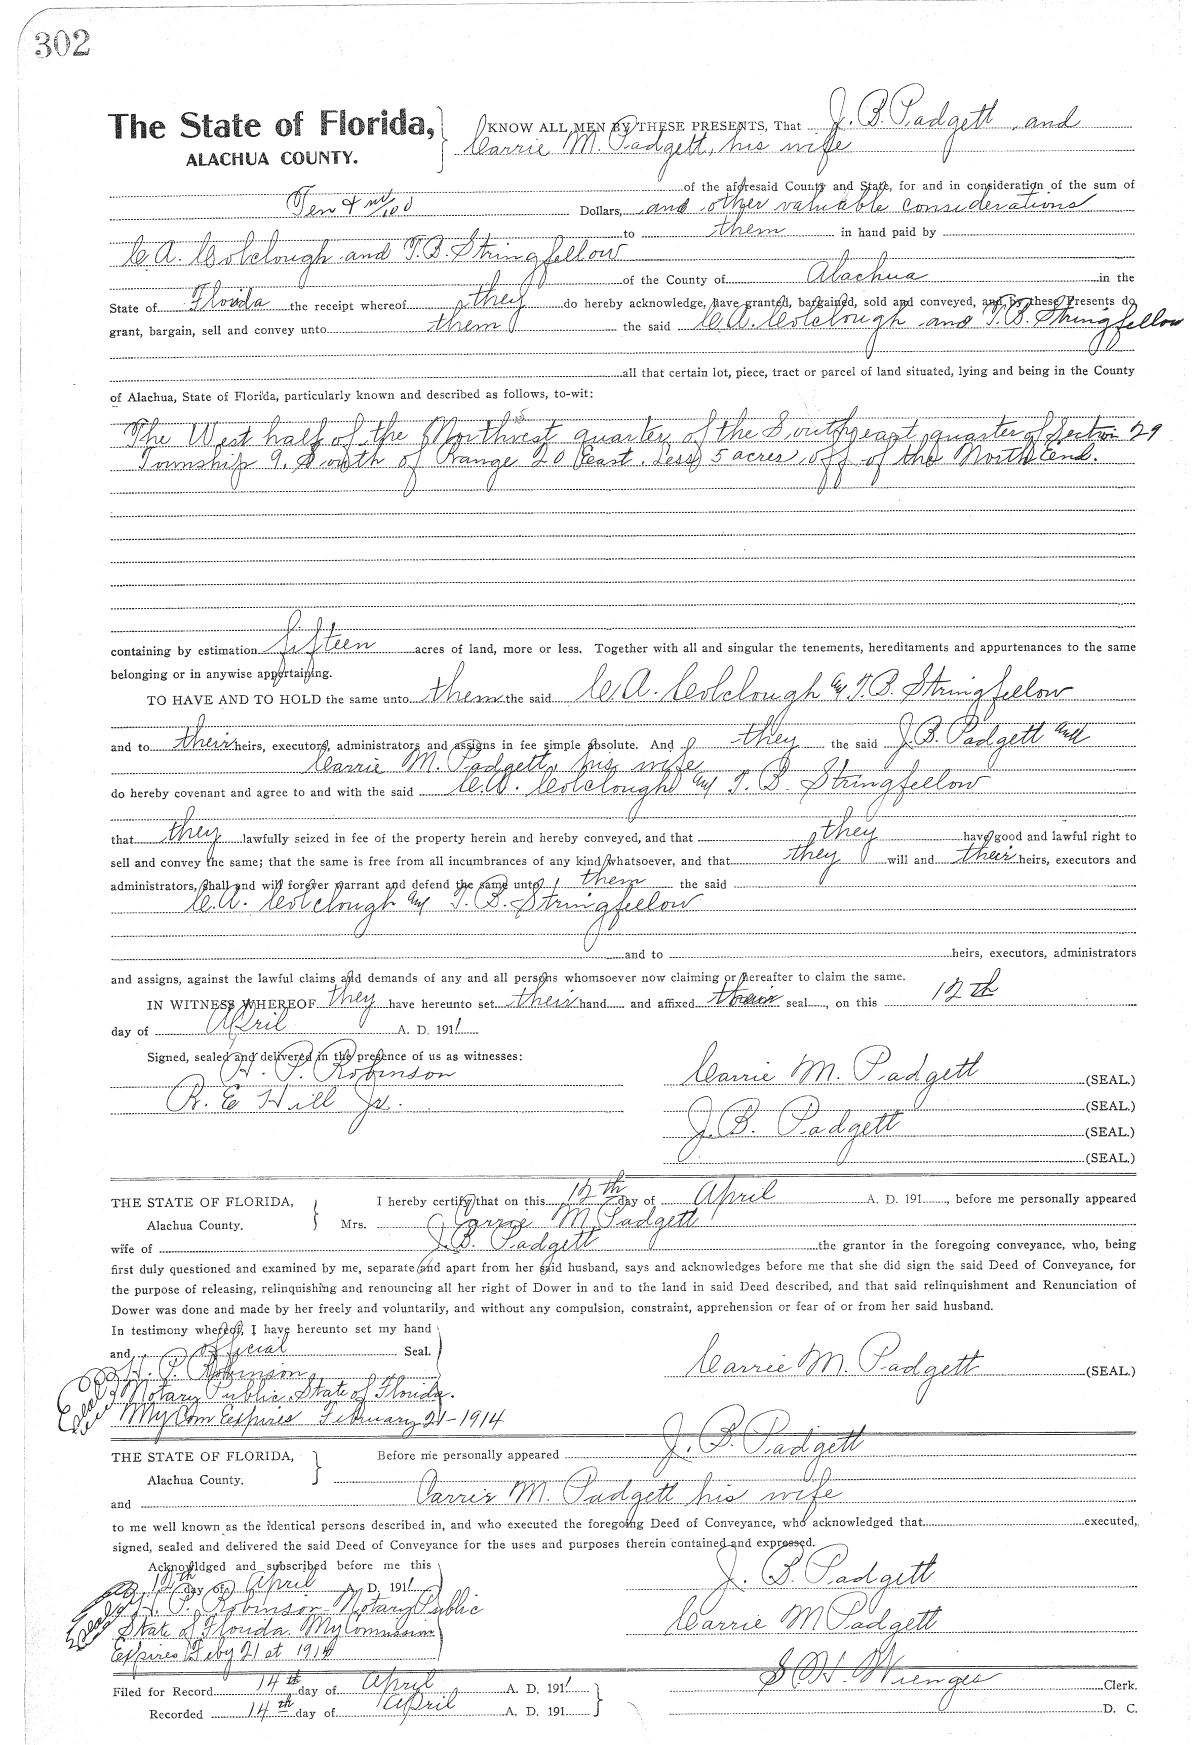 302
The State of Florida, KNOW ALL MEN BY THESE PRESENTS, That J. B. Padgett and
ALACHUA COUNTY. Carrie M. Padgett, his wife
of the aforesaid County and State, for and in consideration of the sum of
Ten & no/100 Dollars, and other valuable considerations
to them in hand paid by
C. A. Colclough and T. B. Stringfellow
of the County of Alachua in the
State of Florida the receipt whereof they do hereby acknowledge, have granted, bargained, sold and conveyed, and by these Presents do
grant, bargain, sell and convey unto them the said C. A. Colclough and T. B. Stringfellow
all that certain lot, piece, tract or parcel of land situated, lying and being in the County
of Alachua, State of Florida, particularly known and described as follows, to-wit:
The West half of the Northwest quarter of the Southeast quarter of Section 29
Township 9. South of Range 20 East. Less 5 acres off of the North End.
containing by estimation fifteen acres of land, more or less. Together with all and singular the tenements, hereditaments and appurtenances to the same
belonging or in anywise appertaining.
TO HAVE AND TO HOLD the same unto them the said C. A. Colclough and T. B. Stringfellow
and to their heirs, executors, administrators and assigns in fee simple absolute. And they the said J. B. Padgett and
Carrie M. Padgett, his wife
do hereby covenant and agree to and with the said C. A. Colclough and T. B. Stringfellow
that they lawfully seized in fee of the property herein and hereby conveyed, and that they have good and lawful right to
sell and convey the same; that the same is free from all incumbrances of any kind whatsoever, and that they will and their heirs, executors and
administrators, shall and will forever warrant and defend the same unto them the said
C. A. Colclough and T. B. Stringfellow
and to heirs, executors, administrators
and assigns, against the lawful claims and demands of any and all persons whomsoever now claiming or hereafter to claim the same.
IN WITNESS WHEREOF they have hereunto set their hand and affixed their seal, on this 12th
day of April A. D. 1911
Signed, sealed and delivered in the presence of us as witnesses:
H. P. Robinson Carrie M. Padgett (SEAL.)
R. E. Hill Jr. (SEAL.)
J. B. Padgett (SEAL.)
(SEAL.)
THE STATE OF FLORIDA, I hereby certify that on this 12th day of April A. D. 191, before me personally appeared
Alachua County. Mrs. Carrie M Padgett
wife of J. B. Padgett the grantor in the foregoing conveyance, who, being
first duly questioned and examined by me, separate and apart from her said husband, says and acknowledges before me that she did sign the said Deed of Conveyance, for
the purpose of releasing, relinquishing and renouncing all her right of Dower in and to the land in said Deed described, and that said relinquishment and Renunciation of
Dower was done and made by her freely and voluntarily, and without any compulsion, constraint, apprehension or fear of or from her said husband.
In testimony whereof, I have hereunto set my hand
and official Seal.
H. P. Robinson Carrie M. Padgett (SEAL.)
Notary Public, State of Florida.
My Com Expires February 21-1914
THE STATE OF FLORIDA, Before me personally appeared J. B. Padgett
Alachua County.
and Carrie M. Padgett his wife
to me well known as the identical persons described in, and who executed the foregoing Deed of Conveyance, who acknowledged that executed,
signed, sealed and delivered the said Deed of Conveyance for the uses and purposes therein contained and expressed.
Acknowldged and subscribed before me this
12th day of April A. D. 1911 J. B. Padgett
H. P. Robinson Notary Public
State of Florida. My Commission Carrie M Padgett
Expires Feby 21 st 1914
Filed for Record 14th day of April A. D. 1911 S. H. Wienges Clerk.
Recorded 14th day of April A. D. 191 D. C.